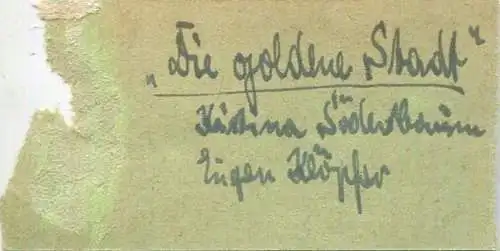 „Die goldene Stadt“
Kristina Söderbaum
Eugen Klöpfer